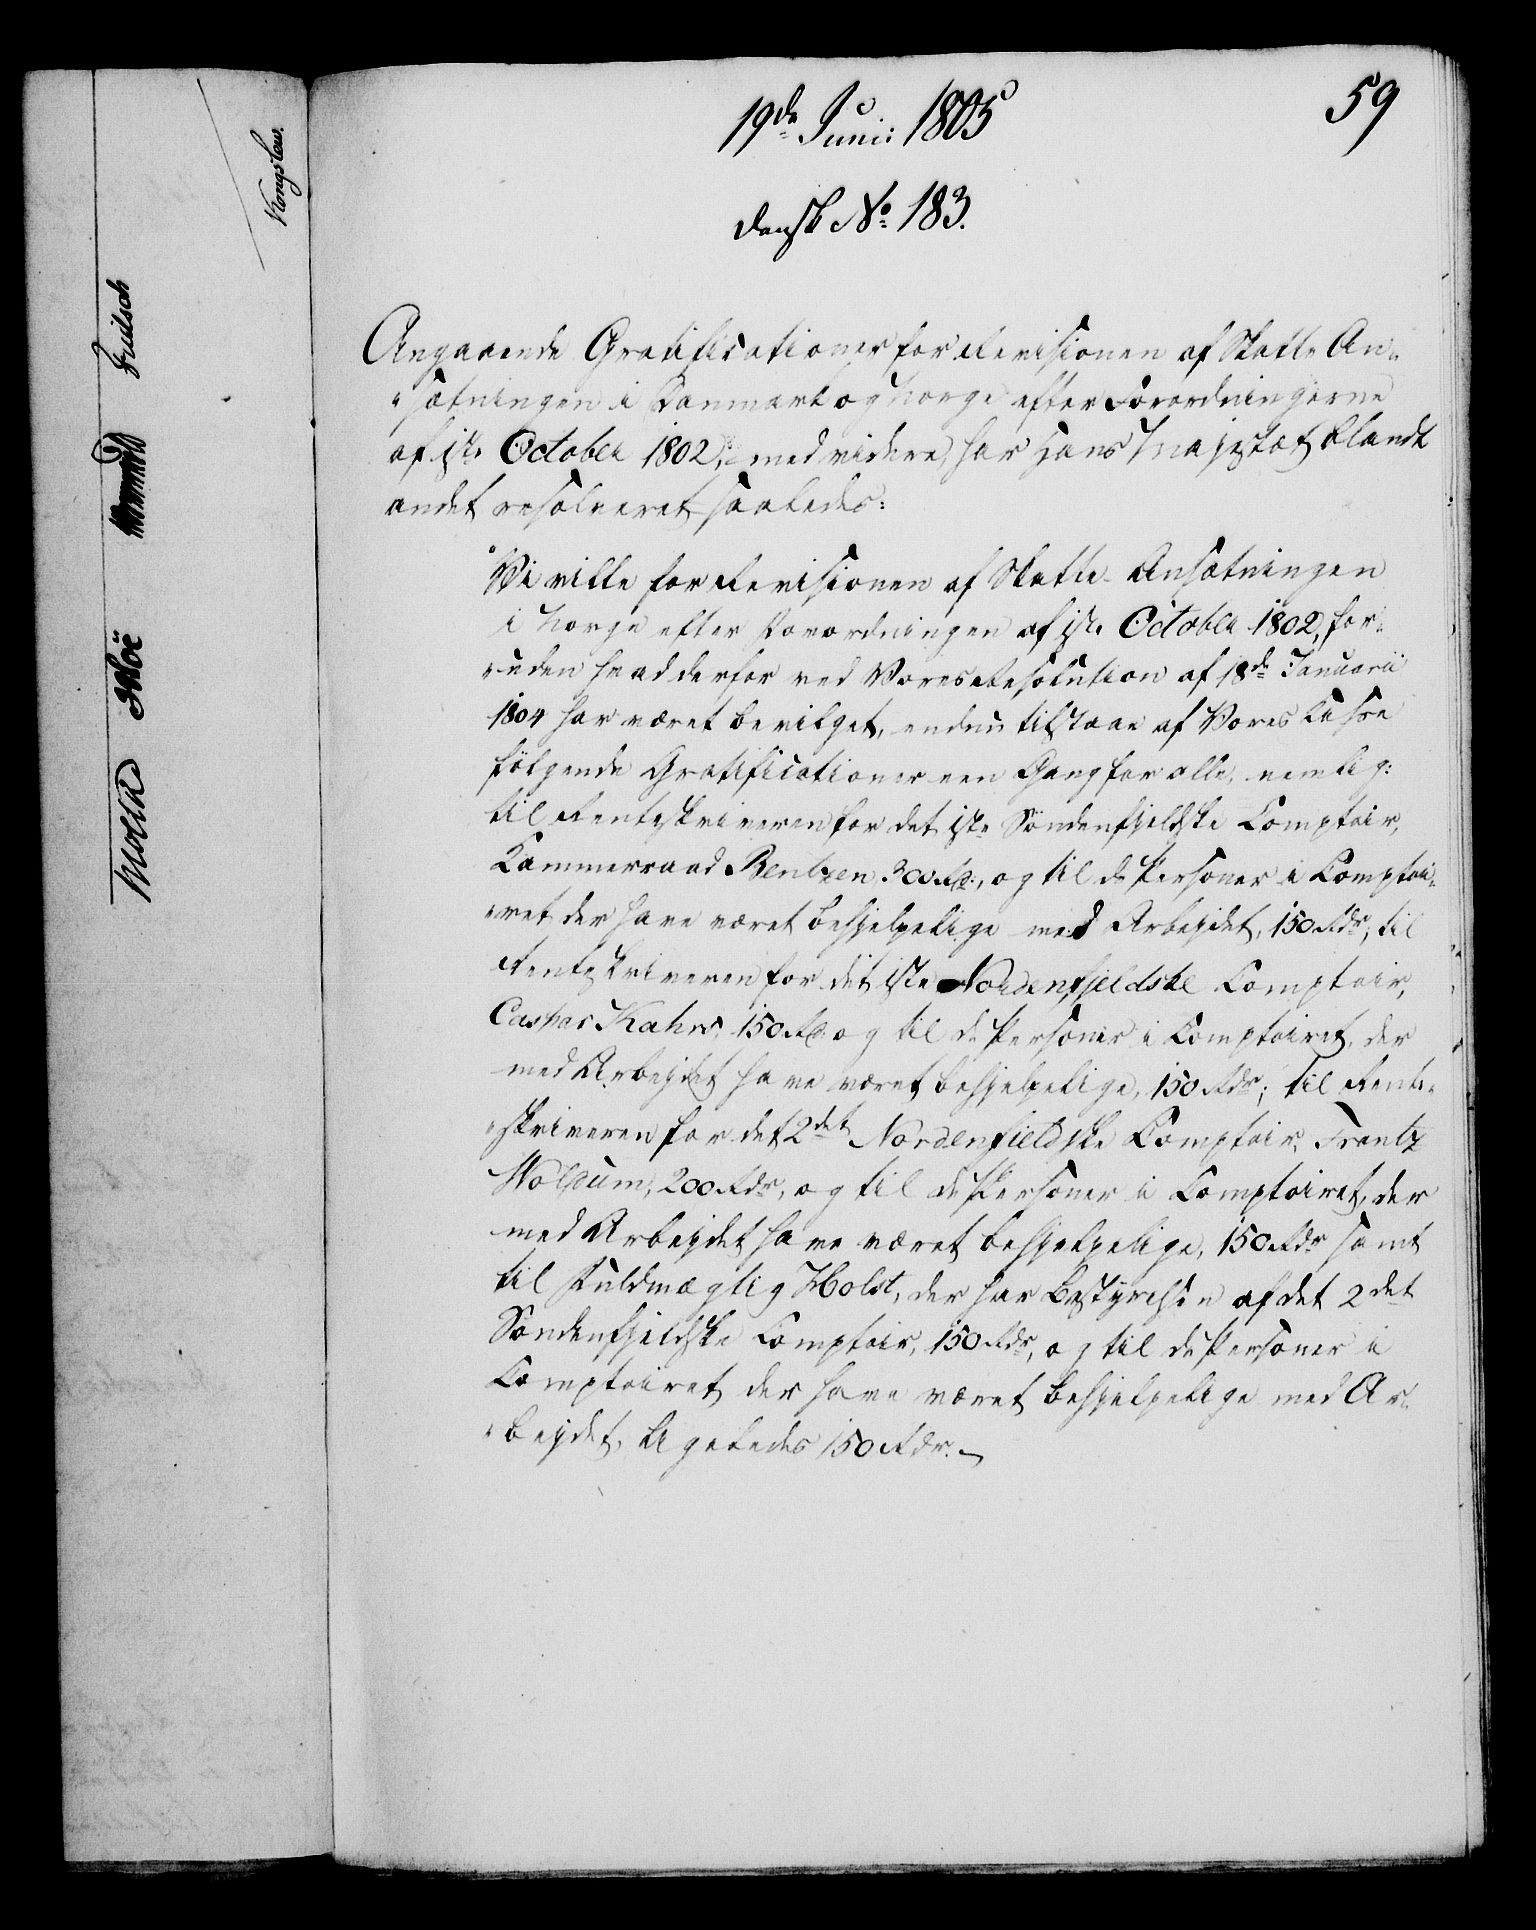 59
19de Junii 1805
dansk No. 183.
Angaaende Gratificationer for Revisionen af Skatte An-
sætningen i Danmark og Norge efter Forordningerne
af 1ste October 1802, med videre, har Hans Majestæt blandt
andet resolveret saaledes:
Vi ville for Revisionen af Skatte-Ansætningen
i Norge efter Forordningen af 1ste October 1802, for-
uden hvad derfor ved Vores Resolution af 18de Januarii
1804 har været bevilget, endnu tilstaae af Vores Casse
følgende Gratificationer een Gang for alle, nemlig:
til Renteskriveren for det 1ste Søndenfjeldske Comptoir,
Kammerraad Bentzen, 300 Rd., og til de Personer i Comptoi-
ret der have været behjelpelige med Arbejdet, 150 Rdr; til
Renteskriveren for det 1ste Nordenfjeldske Comptoir,
Caspar Kahrs, 150 Rd. og til de Personer i Comptoiret, der
med Arbejdet have været behjelpelige, 150 Rdr; til Rente-
skriveren for det 2det Nordenfieldske Comptoir, Frantz
Woldum, 200 Rdr, og til de Personer i Comptoiret, der
med Arbejdet have været behjelpelige, 150 Rdr samt
til Fuldmægtig Holst, der har Bestyrelsen af det 2det
Søndenfjeldske Comptoir, 150 Rdr, og til de Personer i
Comptoiret der have været behjelpelige med Ar-
bejdet, ligeledes 150 Rdr.
Kongslew.
Fritsch
Moe
Molcke